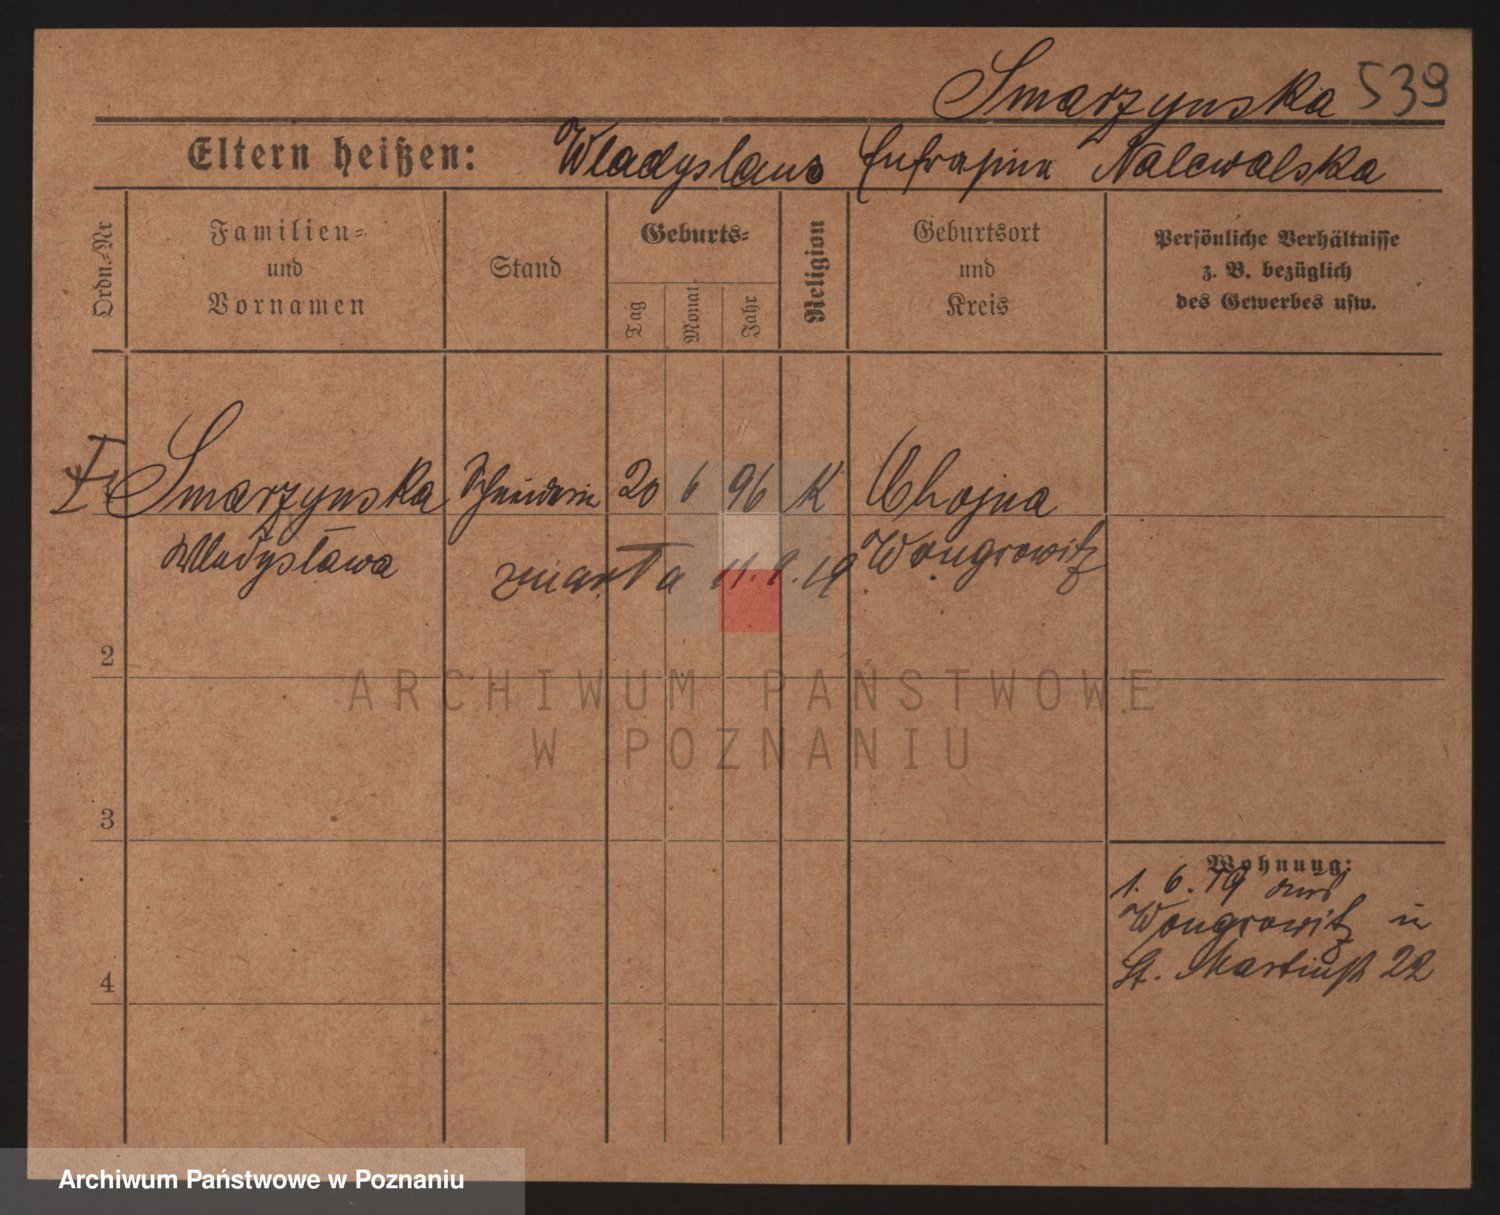 Smarzynska 539
Eltern heißen: Wladyslaus Eufrasina Nalewalska
Ordn.-Nr
Familien-
und
Vornamen
Stand
Geburts-
Tag
Monat
Jahr
Religion
Geburtsort
und
Kreis
Persönliche Verhältnisse
z. B. bezüglich
des Gewerbes usw.
1 Smarzynska Schneiderin 20 6 96 K Chojna
Wladysława Wongrowitz
zmarła 11. 9. 19
2
3
4
Wohnung:
1. 6. 19 aus
Wongrowitz
St. Martinstr 22
ARCHIWUM PAŃSTWOWE
W POZNANIU
Archiwum Państwowe w Poznaniu